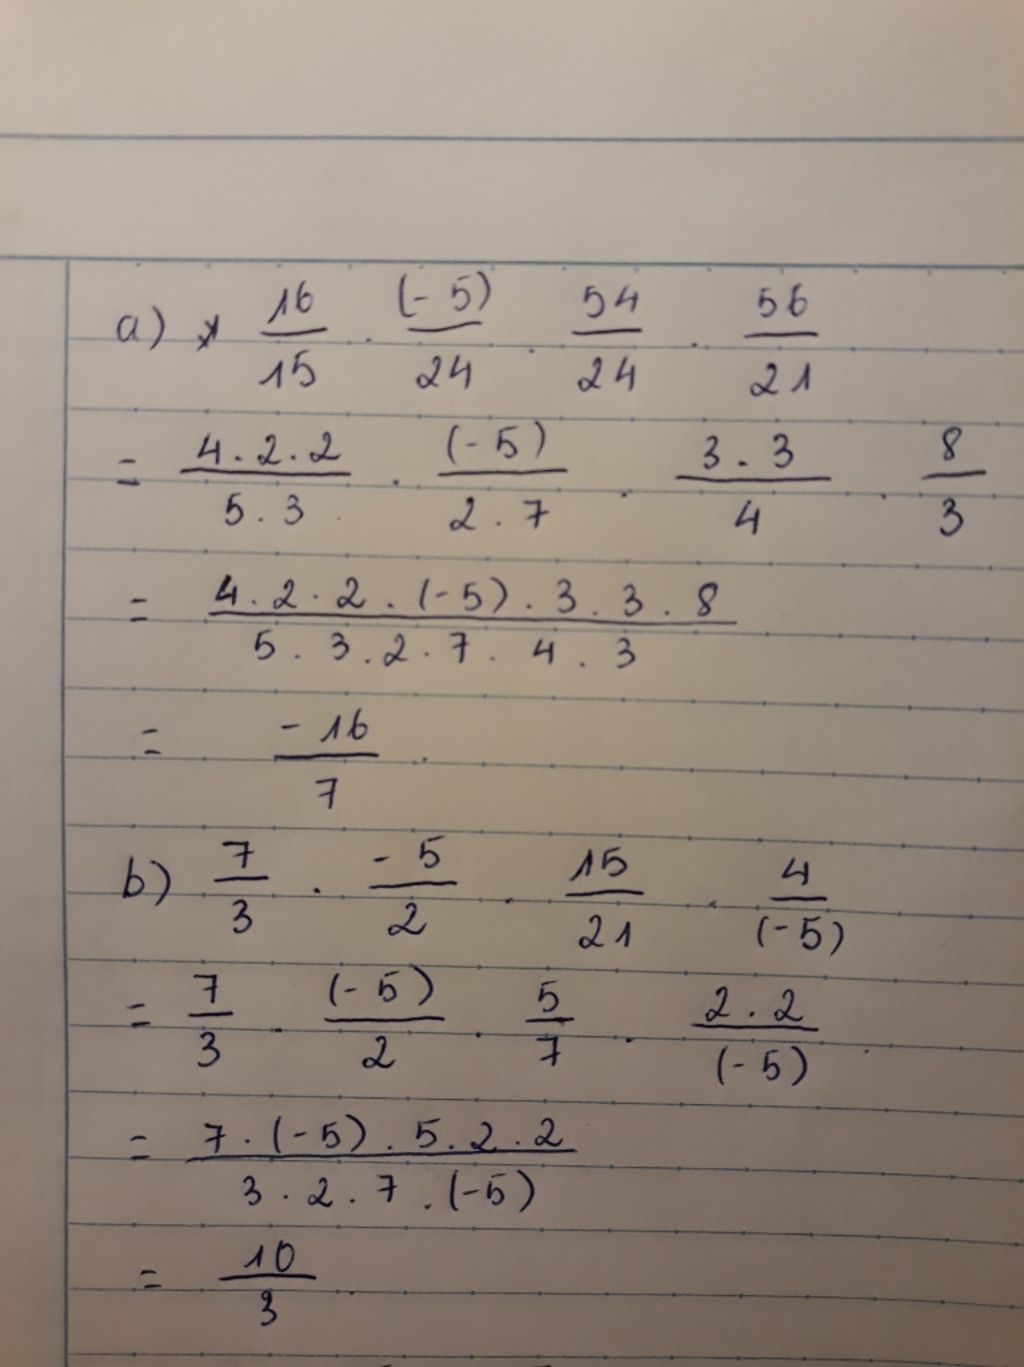 a) * 16/15 . (-5)/24 . 54/24 . 56/21
= 4.2.2/5.3 . (-5)/2.7 . 3.3/4 . 8/3
= 4.2.2.(-5).3.3.8/5.3.2.7.4.3
= -16/7 .
b) 7/3 . -5/2 . 15/21 . 4/(-5)
= 7/3 . (-5)/2 . 5/7 . 2.2/(-5)
= 7.(-5).5.2.2/3.2.7.(-5)
= 10/3 .